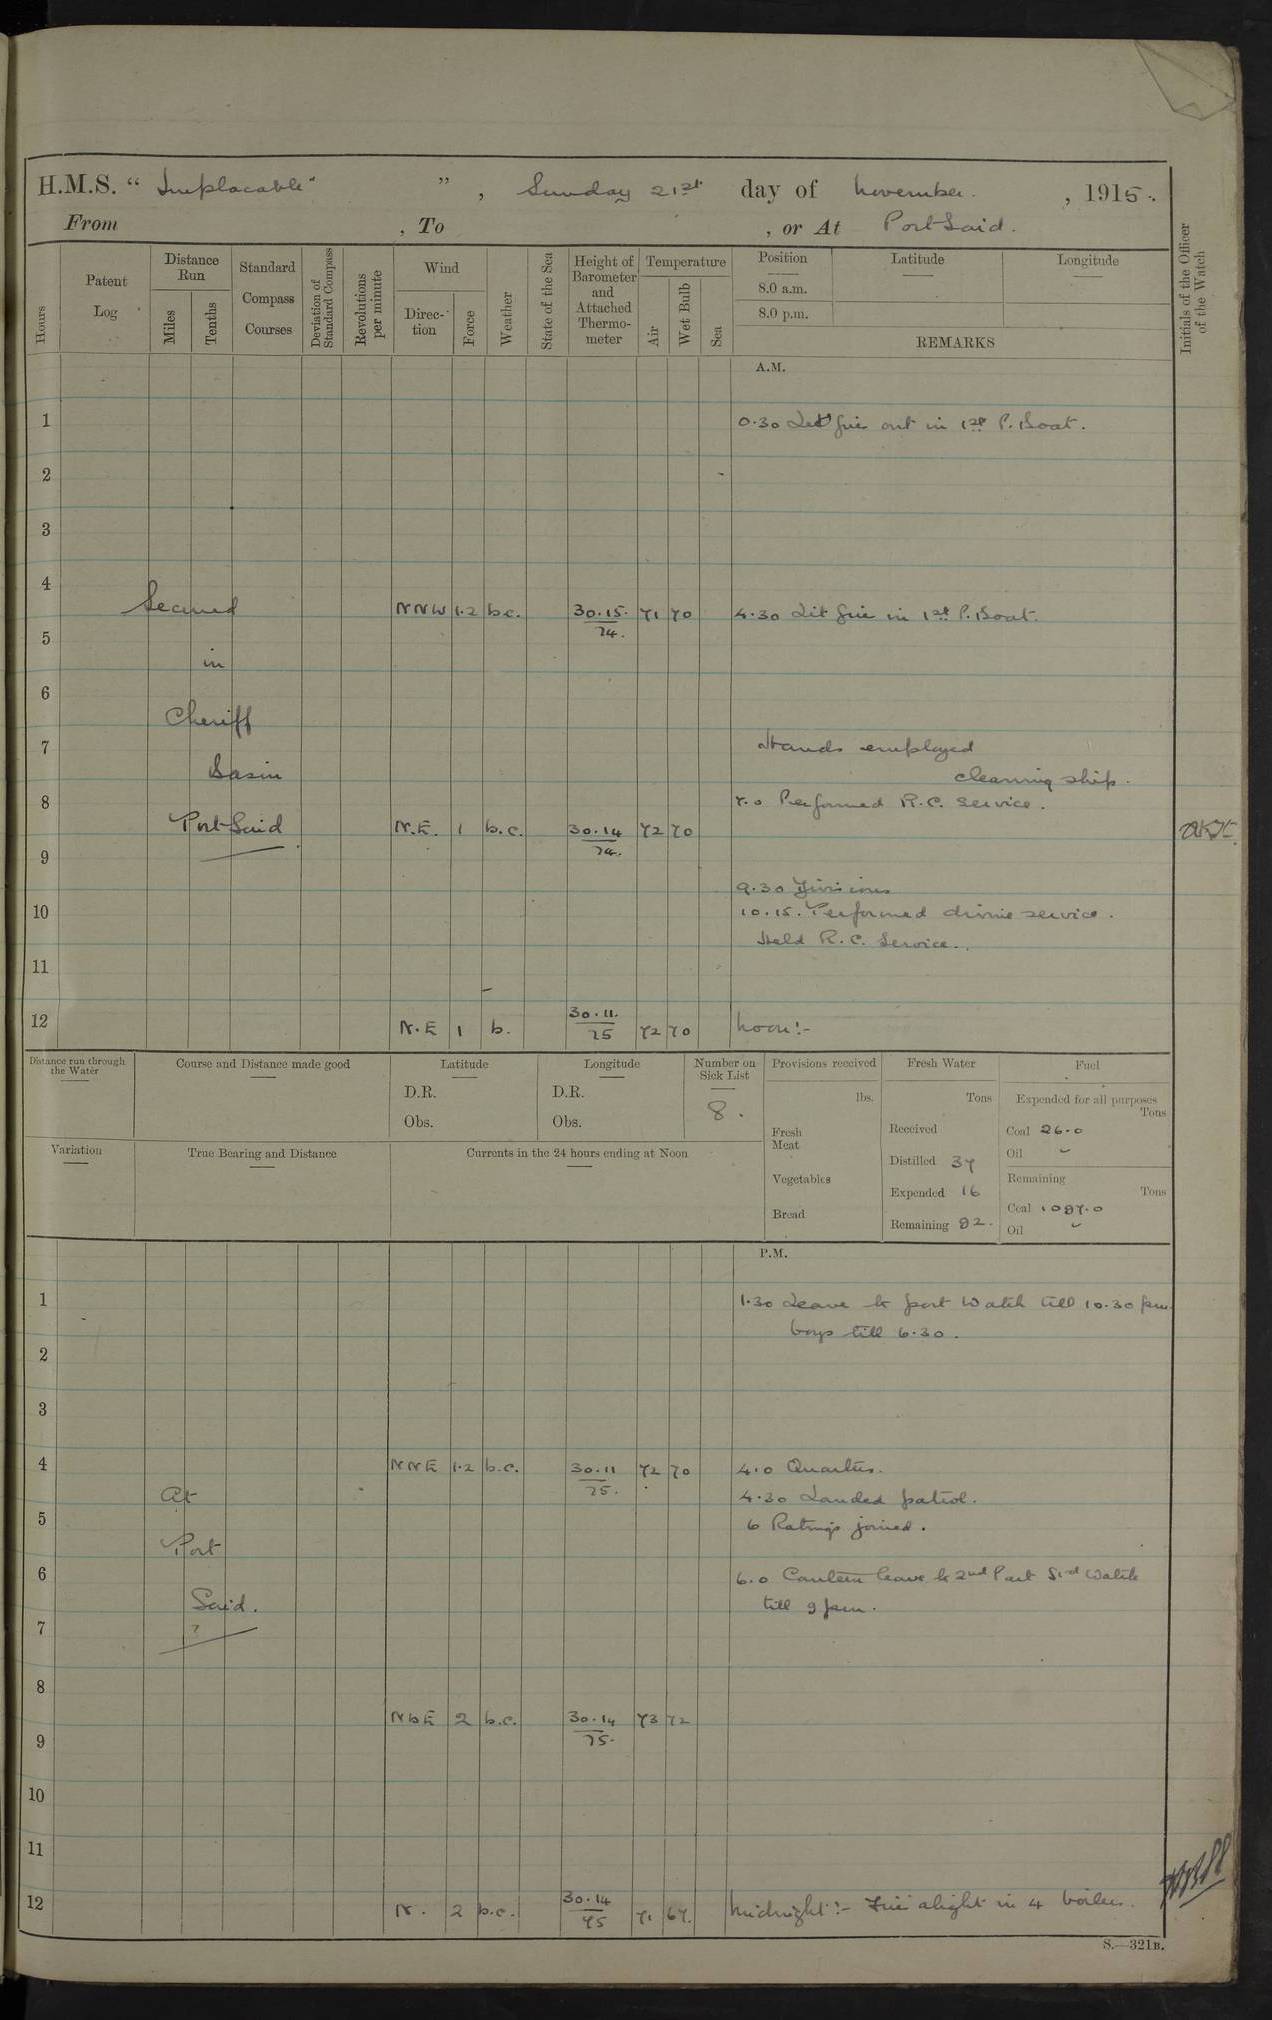 H.M.S. “ Implacable" ” , Sunday 21st day of November. , 1915.
From , To , or At Port Said.
Hours
Patent Log
Distance Run
Miles
Tenths
Standard Compass Courses
Deviation of Standard Compass
Revolutions per minute
Wind
Direc-tion
Force
Weather
State of the Sea
Height of Barometer and Attached Thermo-meter
Temperature
Air
Wet Bulb
Sea
Position
8.0 a.m.
8.0 p.m.
Latitude
Longitude
REMARKS
Initials of the Officer of the Watch
A.M.
1 0.30 Let fire out in 1st P. Boat.
2
3
4
Secured NNW 1.2 b.c. 30.15. 71 70 4.30 Lit fire in 1st P. Boat.
74.
5
in
6
Cheriff
7 Hands employed
Basin cleaning ship.
8 7.0 Performed R.C. Service.
Port Said N.E. 1 b.c. 30.14 72 70
74.
9
9.30 Divisions
10 10.15. Performed divine service.
Held R.C. Service.
11
12 N.E 1 b. 30.11. 72 70 Noon:-
75
Distance run through the Water
Course and Distance made good
Latitude
D.R.
Obs.
Longitude
D.R.
Obs.
Number on Sick List
8.
Provisions received
lbs.
Fresh Meat
Vegetables
Bread
Fresh Water
Tons
Received
Distilled 37
Expended 16
Remaining 92.
Fuel
Expended for all purposes
Tons
Coal 26.0
Oil -
Remaining
Tons
Coal 1087.0
Oil -
Variation
True Bearing and Distance
Currents in the 24 hours ending at Noon
P.M.
1 1.30 Leave to port Watch till 10.30 pm
boys till 6.30.
2
3
4 NNE 1.2 b.c. 30.11 72 70 4.0 Quarters.
75.
At 4.30 Landed patrol.
5 6 Ratings joined.
Port
6 6.0 Canteen leave to 2nd Part Std Watch
Said. till 9 pm.
7
8
NbE 2 b.c. 30.14 73 72
75.
9
10
11
12 N. 2 b.c. 30.14 71 67. Midnight:- Fires alight in 4 boilers.
75
S.—321B.